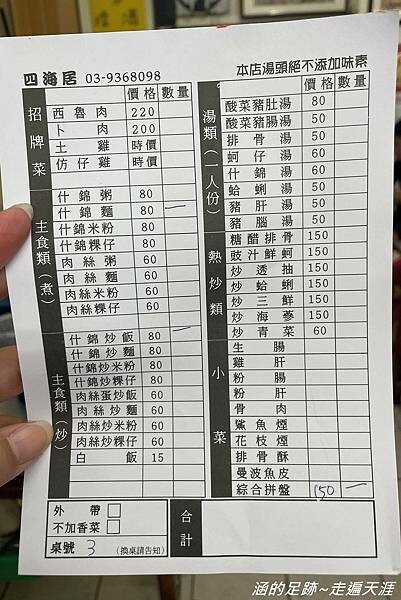 四海居 03-9368098
本店湯頭絕不添加味素
招牌菜 價格 數量
西魯肉 220
卜肉 200
土雞 時價
仿仔雞 時價
主食類(煮)
什錦粥 80
什錦麵 80 一
什錦米粉 80
什錦粿仔 80
肉絲粥 60
肉絲麵 60
肉絲米粉 60
肉絲粿仔 60
主食類(炒)
什錦炒飯 80 一
什錦炒麵 80
什錦炒米粉 80
什錦炒粿仔 80
肉絲蛋炒飯 60
肉絲炒麵 60
肉絲炒米粉 60
肉絲炒粿仔 60
白飯 15
外帶
不加香菜
桌號 3 (換桌請告知)
湯類(一人份) 價格 數量
酸菜豬肚湯 80
酸菜豬腸湯 50
排骨湯 50
蚵仔湯 60
什錦湯 60
蛤蜊湯 50
豬肝湯 50
豬腦湯 50
熱炒類
糖醋排骨 150
豉汁鮮蚵 150
炒透抽 150
炒蛤蜊 150
炒三鮮 150
炒海蔘 150
炒青菜 60
小菜
生腸
雞肝
粉腸
粉肝
骨肉
鯊魚煙
花枝煙
排骨酥
曼波魚皮
綜合拼盤 150 一
合計
涵的足跡~走遍天涯